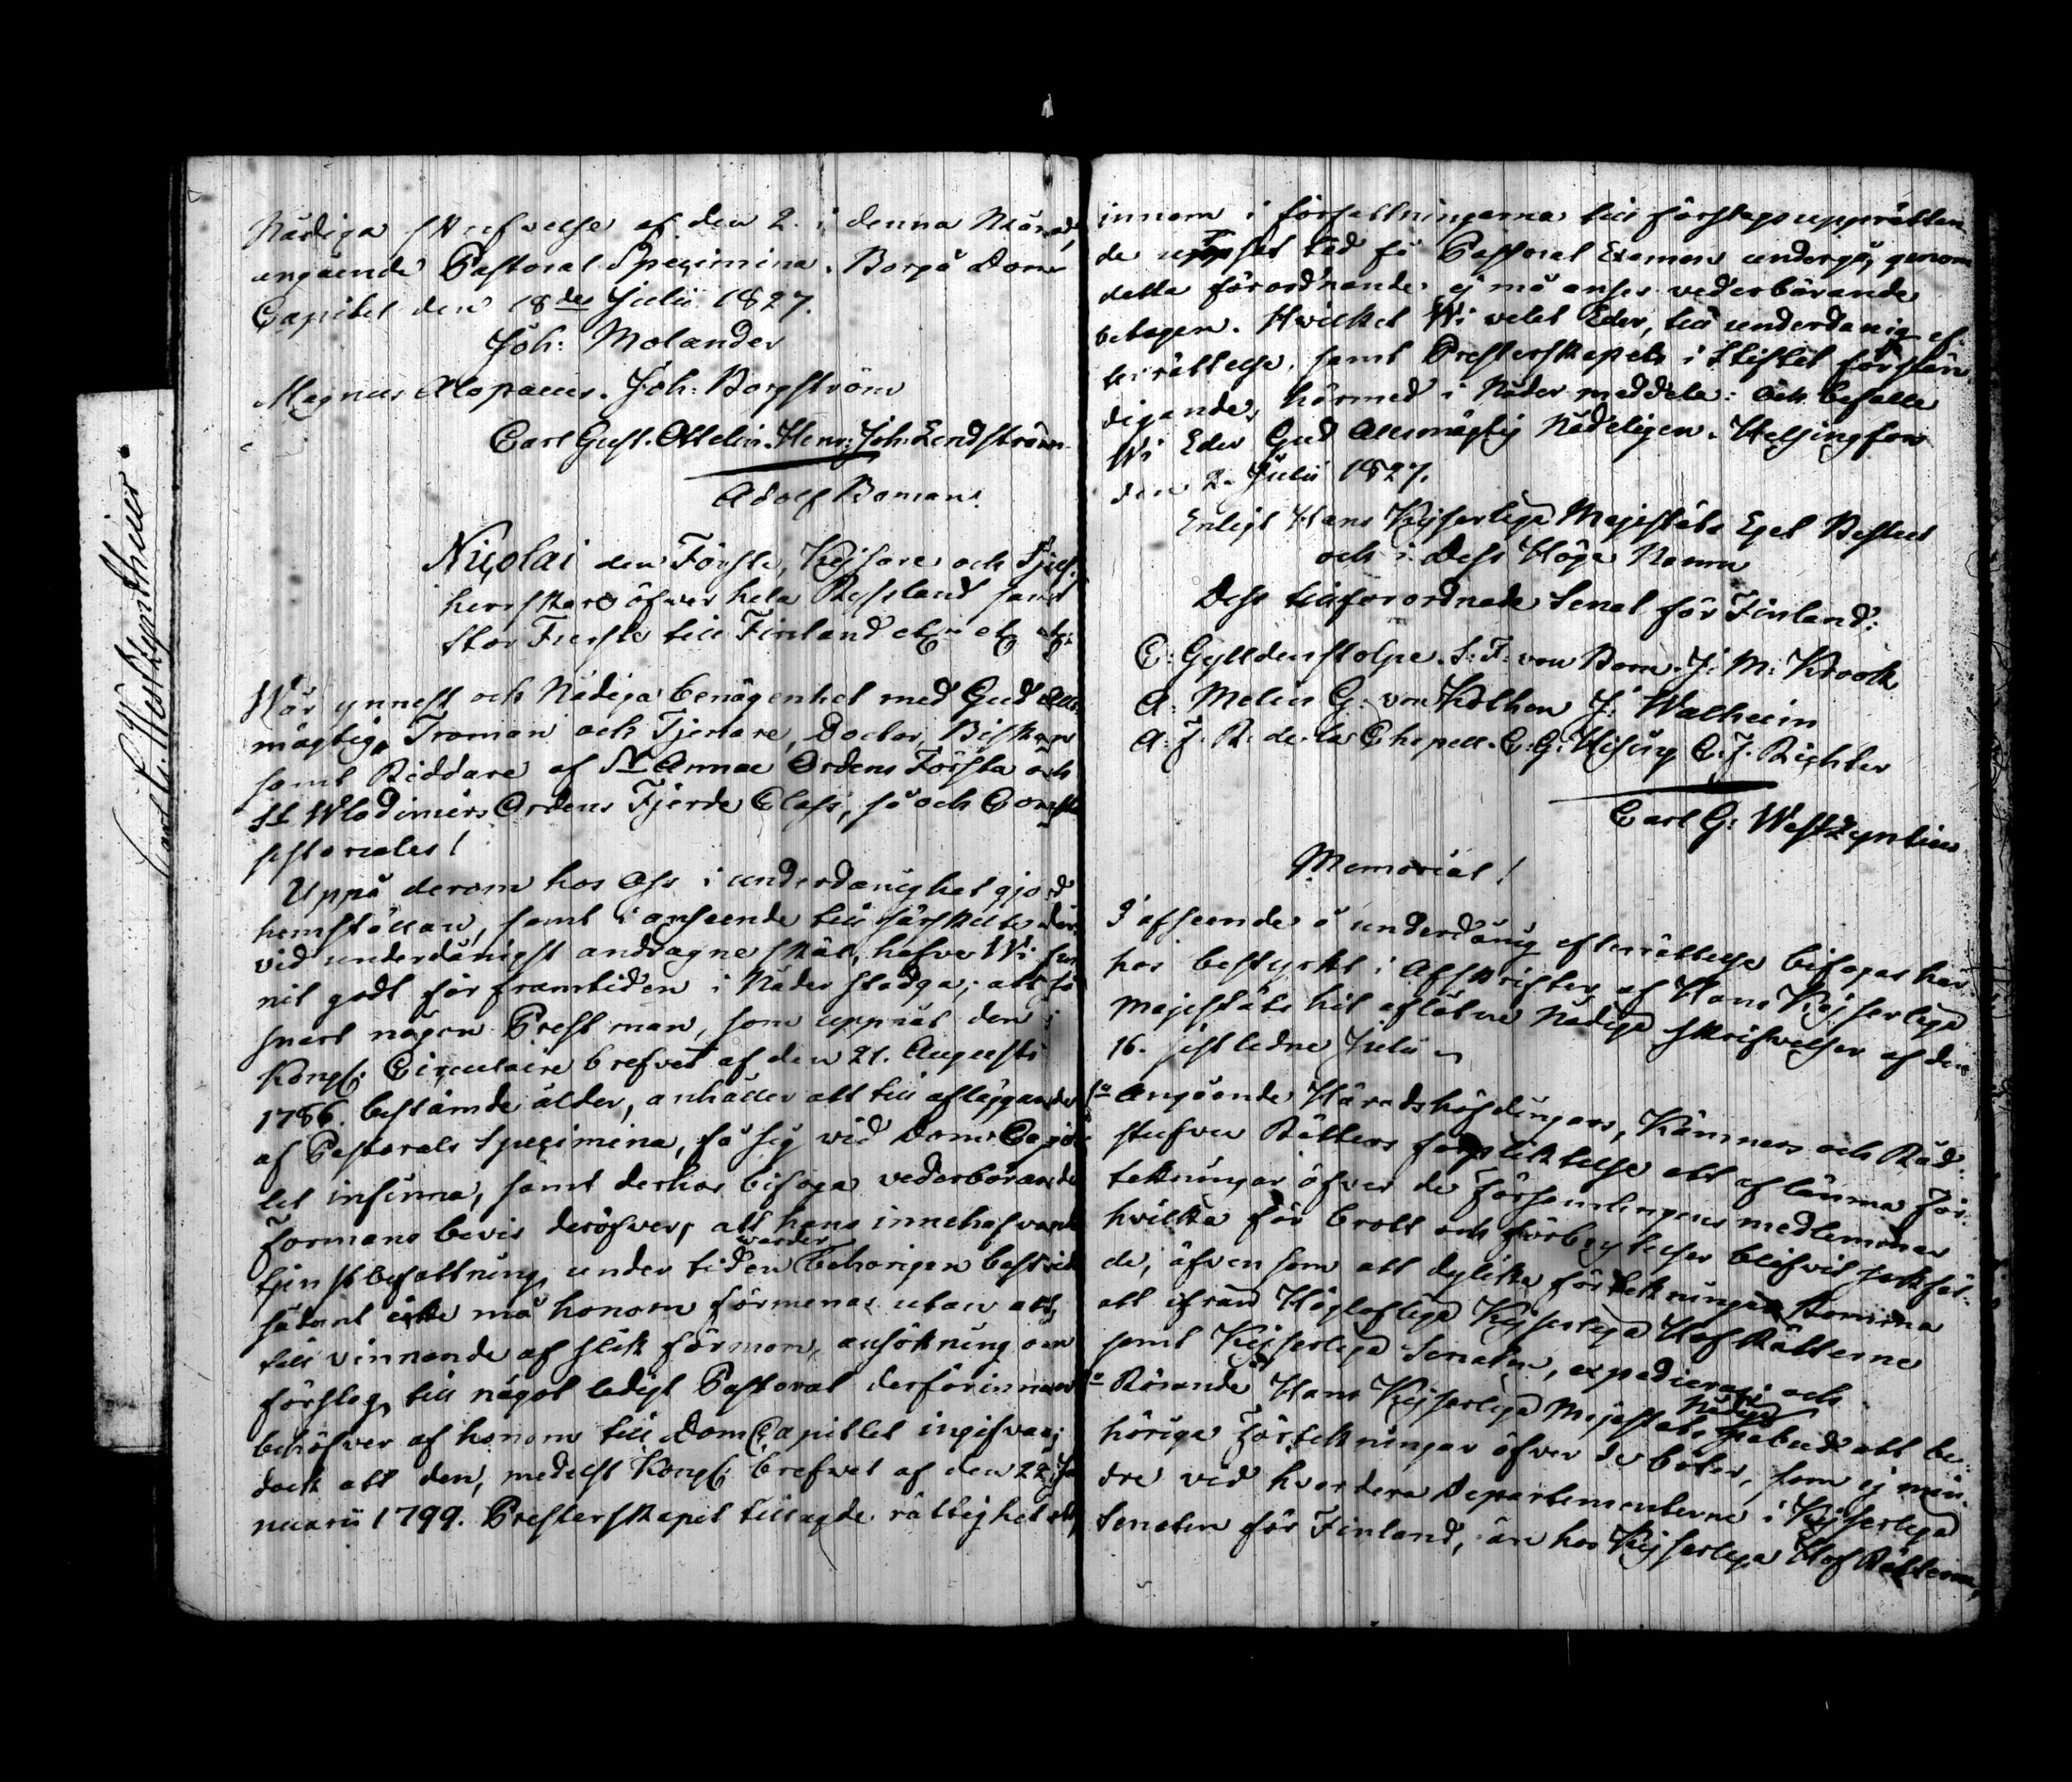 Nådiga Skrifvelse af den 2. i denna Månad,
angående Pastoral Specimina. Borgå Dom
Capitel den 18de Julii 1827.
Joh: Molander
Magnus Alopaeus. Joh: Borgström
Carl Gust. Ottelin. Henr: Joh: Lindström
Adolf Boman.
Nicolai den Förste, Kejsare och Sjelf-
herrskare öfver hela Ryssland samt
Stor Furste till Finland etc. etc. etc.
Wår ynnest och Nådiga benägenhet med Gud All-
mägtig, Troman och Tjenare, Doctor, Biskop
samt Riddare af St Annae Ordens Första och
St Wladimirs Ordens Fjerde Class, så och Consi-
storiales!
Uppå derom hos Oss i underdånighet gjord
hemställan, samt i anseende till särskilte der-
vid underdånigst andragne skäl, hafve Wi fun-
nit godt för framtiden i Nåder stadga; att så
snart någon Prestman, som uppnåt den i
Kongl: Circulaire brefvet af den 21. Augusti
1786. bestämde ålder, anhåller att till afläggande
af Pastorals Specimina, få sig vid Dom-Capit-
let infinna, samt derhos bifoga vederbörande
Formans bevis deröfver, att hans innehafvande
tjenstbefattning under tiden warder behörigen bestridd
sådant icke må honom förmenas utan att
till vinnande af slik förmon, ansökning om
förslag till något ledigt Pastorat derförinnan
behöfver af honom till DomCapitlet ingifvas;
dock att den, medelst Kongl: brefvet af den 22 Ja-
nuarii 1799. Presterskapet tillagde rättighet att,
innom i författningarna till förslags upprättan-
de utsatt tid få Pastoral Examen undergå, genom
detta förordnande ej må anses vederbörande
betagen. Hvilket Wi velat Eder, till underdånig ef-
terrättelse, samt Presterskapets i Stiftet förstän-
digande, härmed i Nåder meddela: Och befalle
Wi Eder Gud Allsmägtig Nådeligen. Helsingfors
den 2. Julii 1827.
Enligt Hans Kejserliga Majestäts Eget Beslut
och i Dess Höga Namn
Dess tillförordnade Senat för Finland:
C: Gyldenstolpe. S: F: von Born. J: M: Krook
A: Melin G: von Kothen J: Walheim
A: J. R: de la Chapell. C: G: Hising C. J. Richter
Carl G: Westzynthius
Memorial!
I afseende å underdånig efterrättelse bifogas här-
hos bestyrkt i Afskrifter af Hans Kejserliga
Majestäts hit aflåtne Nådiga Skrifvelser af den
16. sistledne Julii
1o Angående Häradshöfdingars, Kämners och Råd-
stufvu Rätters förpliktelse att aflämna För-
tekningar öfver de Församlingens medlemmar
hvilka för brott och förbrytelser blifvit sakfäl-
de, äfvensom att dylika förtekningar komma
att ifrån Höglofliga Kejserliga HofRätterne
samt Kejserliga Senaten, expedieras: och
2o Rörande Hans Kejserliga Majestäts Nådiga påbud att be-
höriga Förtekningar öfver de böter, som ej min-
dre vid hvardera Departementerne i Kejserliga
Senaten för Finland, än hos Kejserliga HofRätterna,
Carl G. Westzynthius.